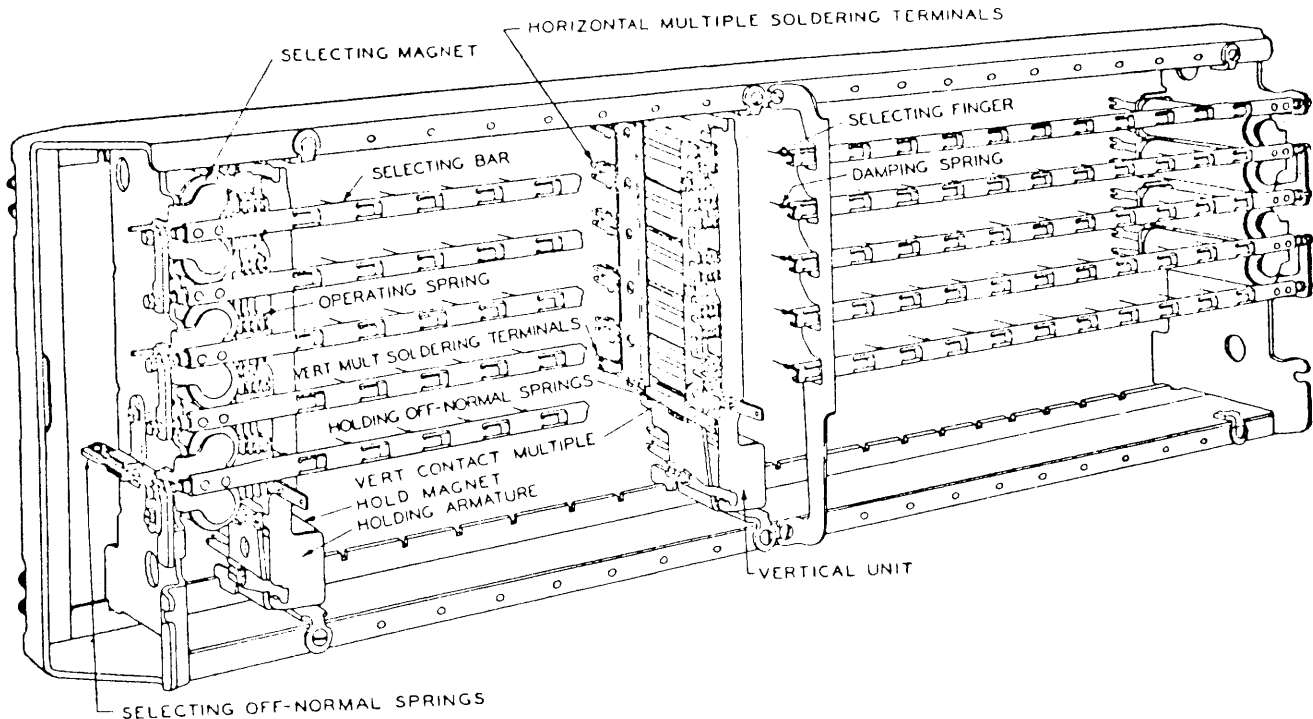 HORIZONTAL MULTIPLE SOLDERING TERMINALS
SELECTING MAGNET
SELECTING FINGER
SELECTING BAR
DAMPING SPRING
OPERATING SPRING
VERT MULT SOLDERING TERMINALS
HOLDING OFF-NORMAL SPRINGS
VERT CONTACT MULTIPLE
HOLD MAGNET
HOLDING ARMATURE
VERTICAL UNIT
SELECTING OFF-NORMAL SPRINGS